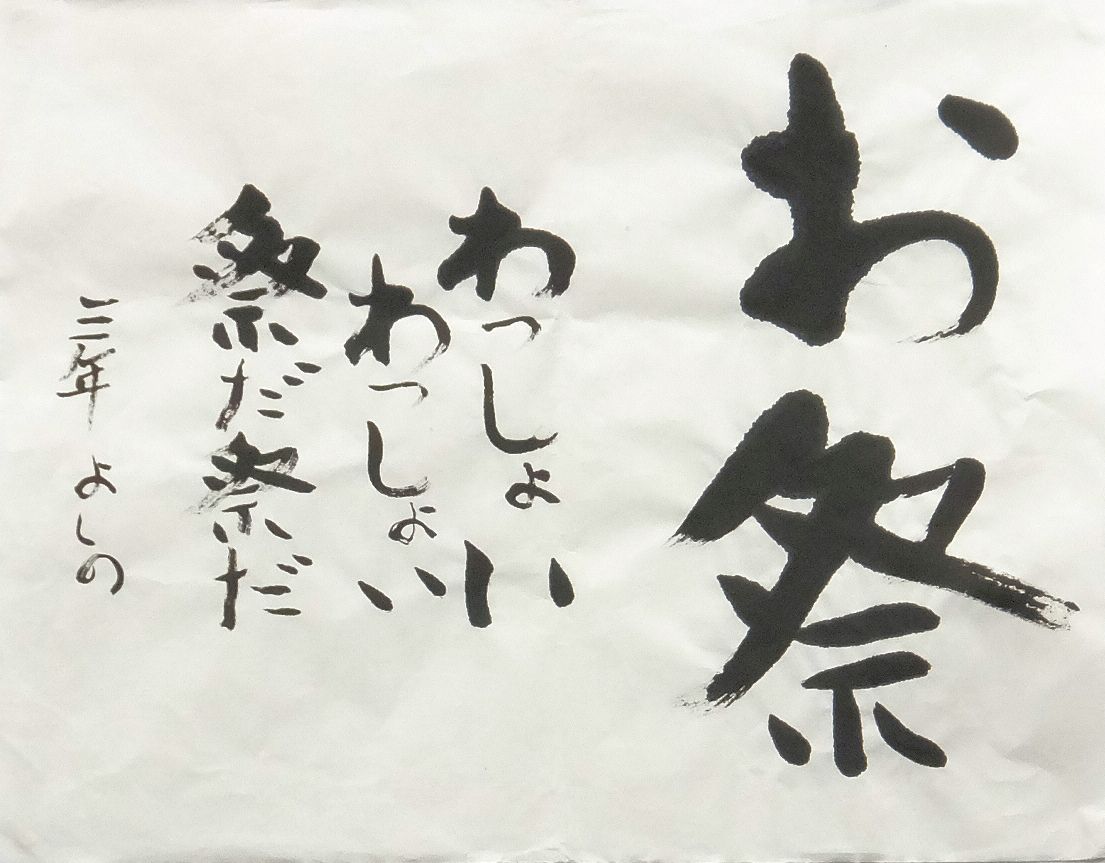 お祭
わっしょい
わっしょい
祭だ祭だ
三年 よしの